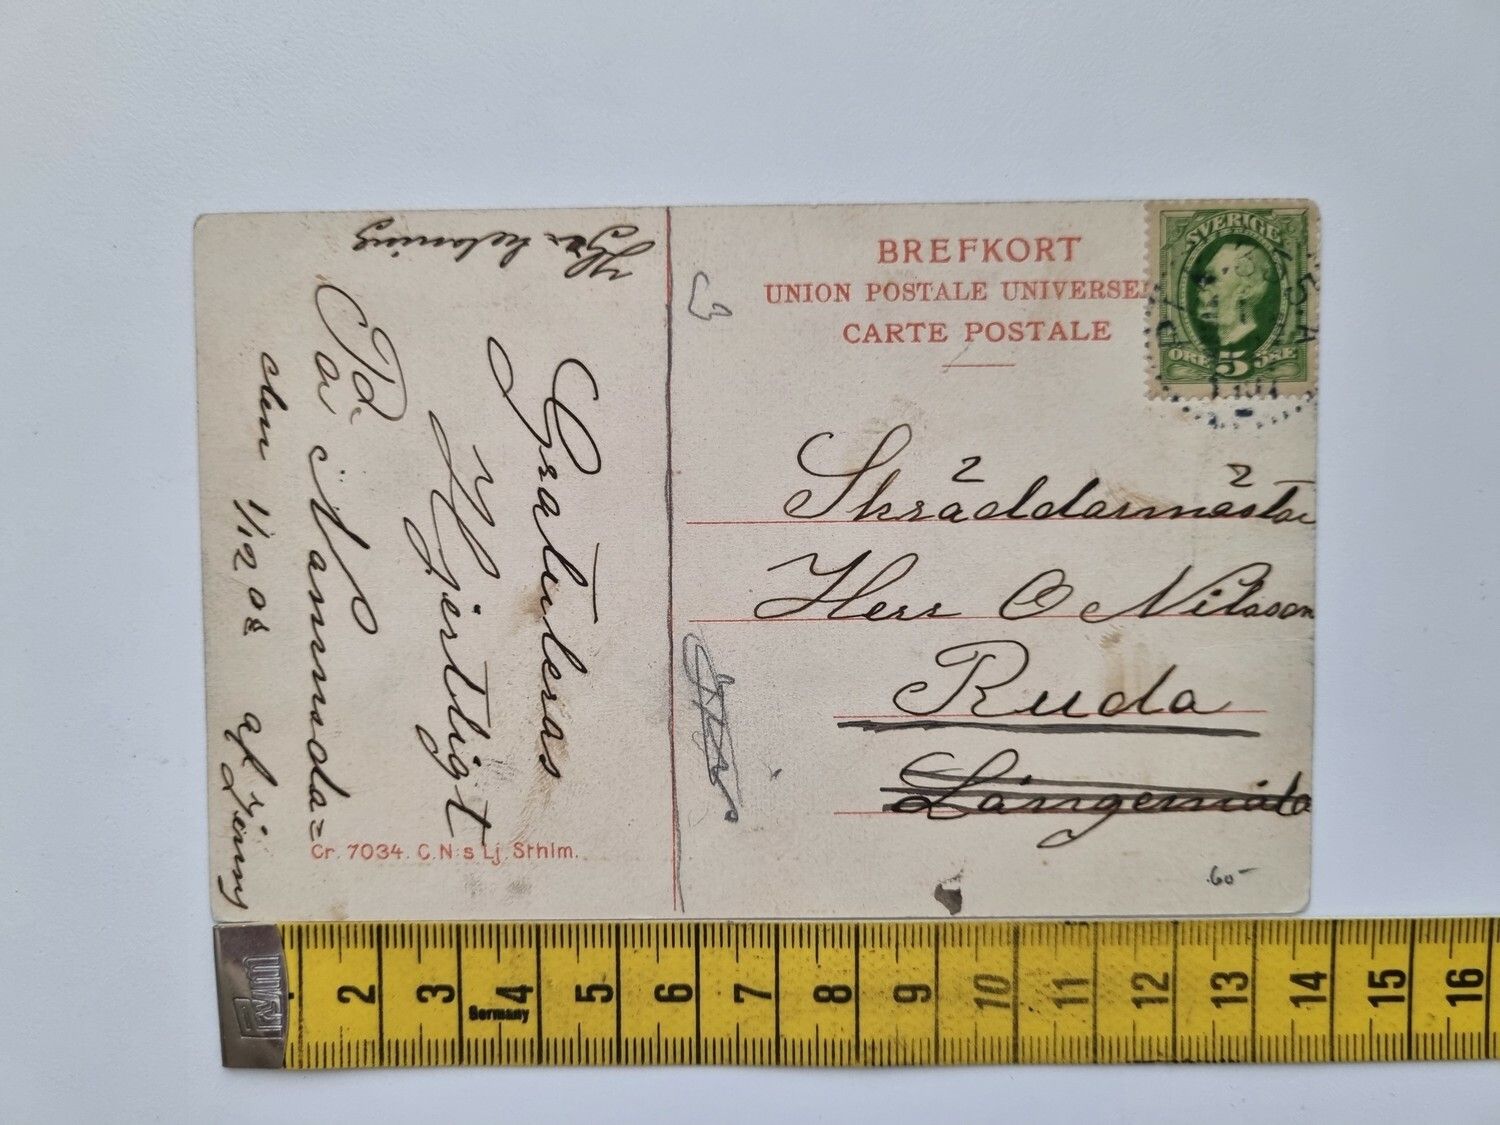 BREFKORT
UNION POSTALE UNIVERSEL
CARTE POSTALE
SVERIGE
ÖRE 5 ÖRE
Skräddarmästar
Herr O Nilsson
Ruda
Långemåla
60-
Gratuleras
Hjertligt
På
Namnsda=
den 1/12 08 af Jenny
Cr. 7034. C.N:s Lj. Sthlm.
3
Germany
2 3 4 5 6 7 8 9 10 11 12 13 14 15 16